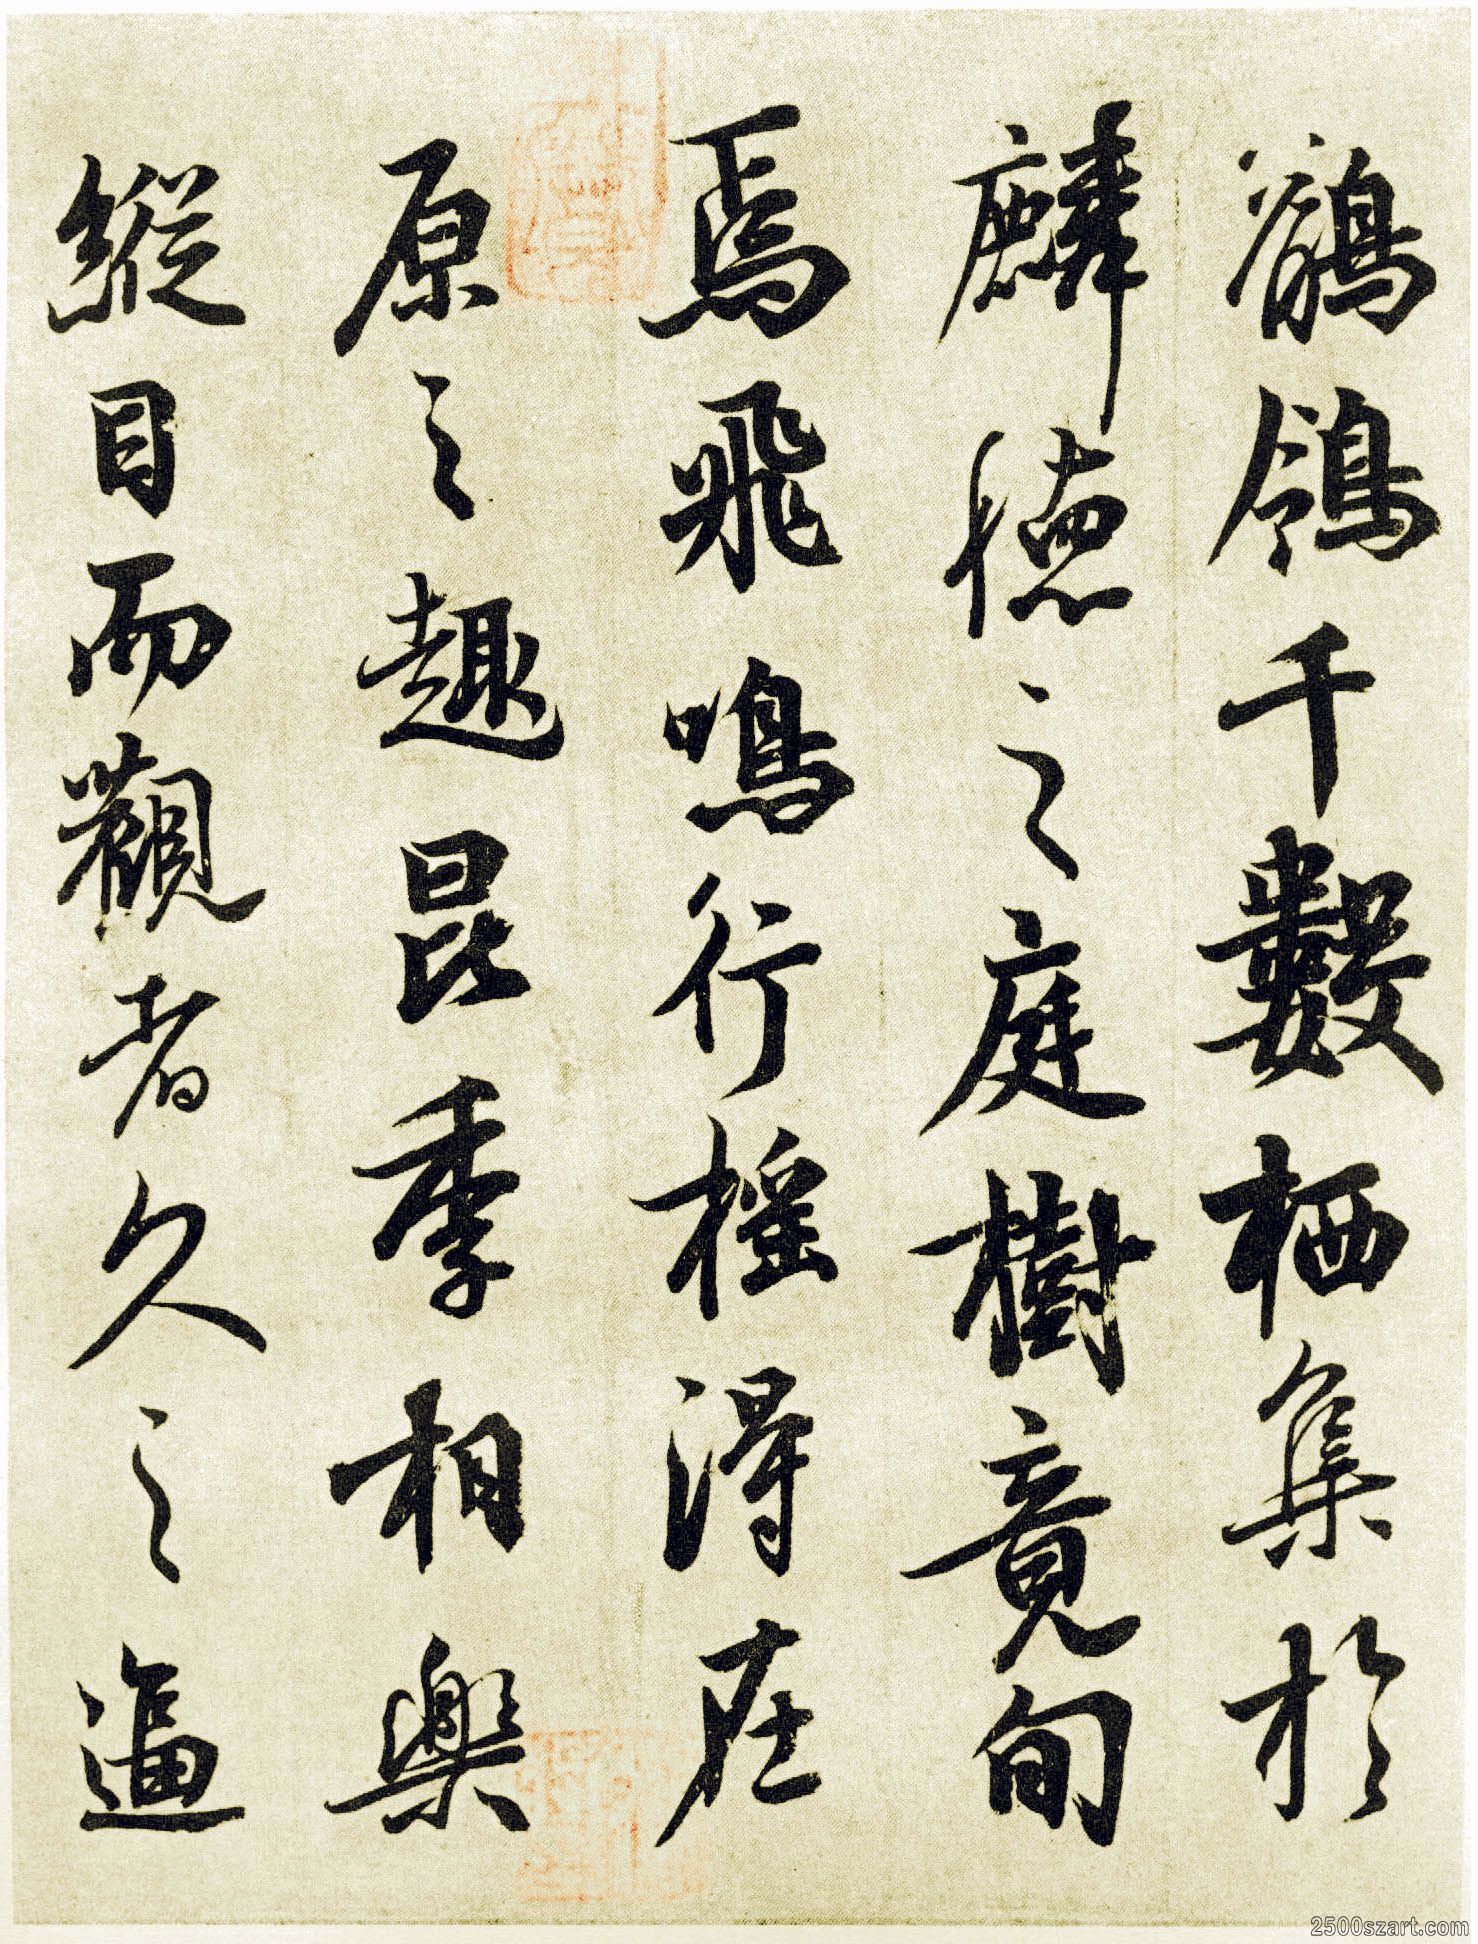 鶺鴒千數栖集於
麟德之庭樹竟旬
焉飛鳴行搖得在
原之趣昆季相樂
縱目而觀者久之逼
2500szart.com